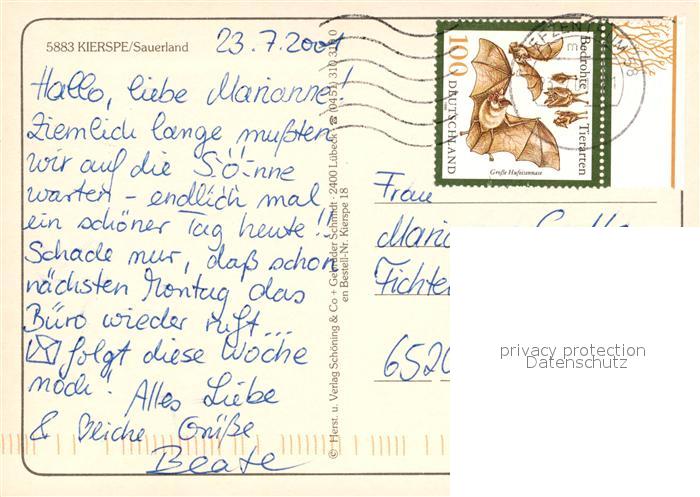 5883 KIERSPE/Sauerland
23.7.2001
Hallo, liebe Marianne!
Ziemlich lange mußten
wir auf die S.Ö.nne
warten - endlich mal
ein schöner Tag heute!!
Schade nur, daß schon
nächsten Montag das
Büro wieder ruft...
folgt diese Woche
noch! Alles Liebe
& Reiche Grüße
Beate
© Herst. u. Verlag Schöning & Co + Gebrüder Schmidt · 2400 Lübeck ☎ (0451) 310 310
en Bestell-Nr. Kierspe 18
100
DEUTSCHLAND
Bedrohte Tierarten
Große Hufeisennase
Frau
Maria
Fichte
652
privacy protection
Datenschutz